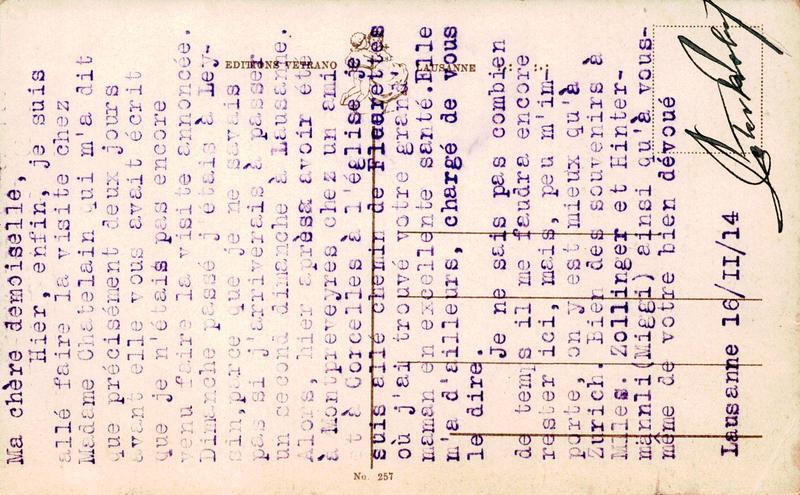 Ma chère demoiselle,
Hier, enfin, je suis
allé faire la visite chez
Madame Chatelain qui m'a dit
que précisément deux jours
avant elle vous avait écrit
que je n'étais pas encore
venu faire la visite annoncée.
Dimanche passé j'étais à Ley-
sin, parce que je ne savais
pas si j'arriverais à passer
un second dimanche à Lausanne.
Alors, hier après avoir été
à Montpreveyres chez un ami
et à Corcelles à l'église je
suis allé chemin de Fleurettes
où j'ai trouvé votre grand
maman en excellente santé. Elle
m'a d'ailleurs, chargé de vous
le dire.
Je ne sais pas combien
de temps il me faudra encore
rester ici, mais, peu m'im-
porte, on y est mieux qu'à
Zurich. Bien des souvenirs à
Mlles. Zollinger et Hinter-
männli(Miggi) ainsi qu'à vous-
même de votre bien dévoué
Lausanne 16/II/14
EDITIONS VETRANO LAUSANNE
No. 257